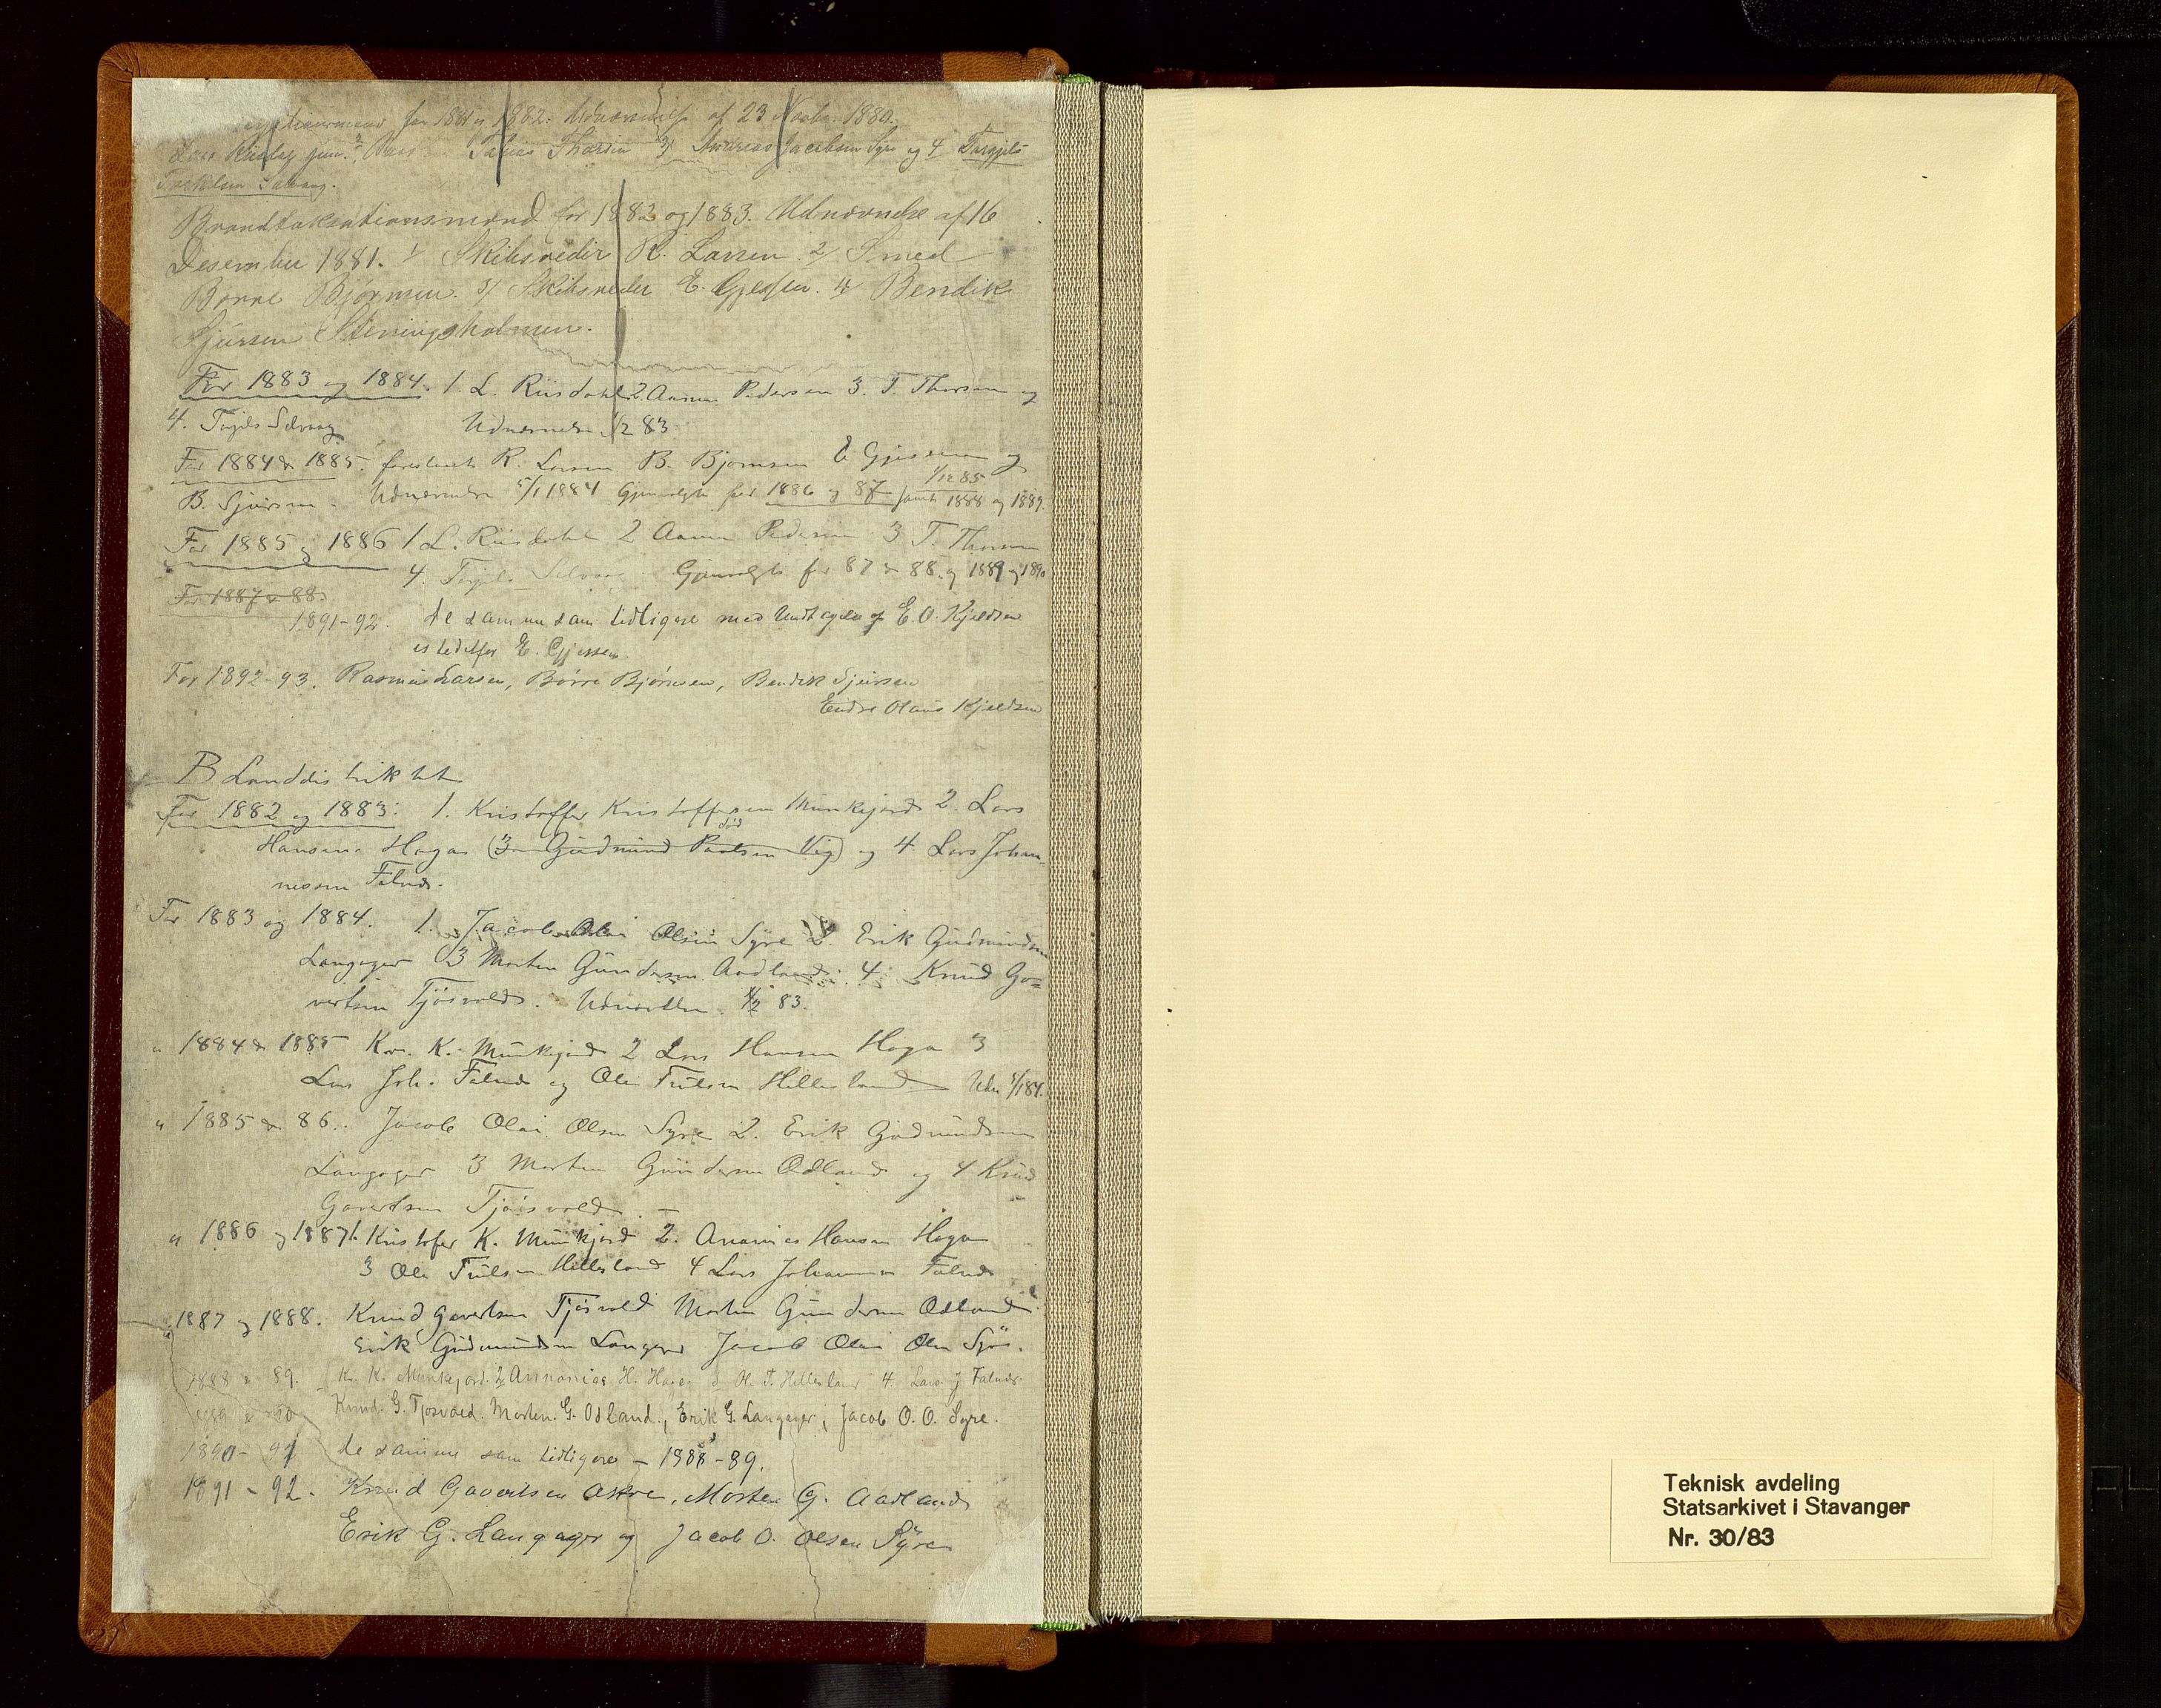 for 1881 og 1882. Udnævnelse af 23 Novbr. 1880.
Thorsen 3/ Andreas Jacobsen Syre og 4 Torgjels
Brandtaksationsmænd for 1882 og 1883. Udnævnelse af 16
Desember 1881. 1/ Skibsreder R. Larsen 2/ Smed
Børre Bjørnsen. 3/ Skibsreder E. Gjessen. 4/ Bendik
Sjursen Steiningsholmen.
For 1883 og 1884. 1. L. Riisdahl 2. Aamun Pedersen 3. T. Thorsen og
4. Torjils Selvaag Udnævnelse 1/2 83
For 1884 & 1885. R. Larsen B. Bjørnsen E Gjessen og
B. Sjursen. Udnævnelse 5/1 1884 Gjenvalgte for 1886 og 87 1/12 85 samt 1888 og 1889.
For 1885 og 1886 1 L. Riisdahl 2 Aamun Pedersen 3 T. Thorsen
4. Torjils Selvaag Gjenvalgte for 87 & 88. og 1889 og 1890
For 1887 & 88.
1891-92. de samme som tidligere med Undtagelse af E. O. Kjeldsen
istedetfor E. Gjessen
For 1892-93. Rasmus Larsen, Børre Bjørnsen, Bendik Sjursen
Endre Olaus Kjeldsen
B Landdistriktet
For 1882 og 1883: 1. Kristoffer Kristoffersen Munkejord 2. Lars
Hansen Haga (3 Gudmund Paulsen Vig) død og 4 Lars Johan-
nessen Falnes.
For 1883 og 1884. 1. Jacob Olai Olsen Syre 2. Erik Gudmundsen
Langager 3 Morten Gundersen Aadland. 4. Knud Go=
vertsen Tjøsvold. 1/2 83.
" 1884 & 1885 Kr. K. Munkejord 2 Lars Hansen Haga 3
Lars Joh. Falnes og Ole Hillesland Udn 5/1 84.
" 1885 & 86. Jacob Olai Olsen Syre 2. Erik Gudmundsen
Langager 3 Morten Gundersen Odland og 4 Knud
Govertsen Tjøsvold. —
" 1886 og 1887 1. Kristofer K. Munkejord 2. Ananias Hansen Haga
3 Ole Hillesland 4 Lars Johannesen Falnes
" 1887 og 1888. Knud Govertsen Tjøsvold Morten Gundersen Odland
Erik Gudmundsen Langager Jacob Olai Olsen Syre.
1888 & 89. 1 Kr. K. Munkejord. 2, Annanias H. Haga 3 Ol. T. Hillesland 4. Lars J Falnes.
Knud. G. Tjosvold. Morten. G. Odland., Erik G. Langager, Jacob O. O. Syre.
1890 - 91 de samme som tidligere — 1888-89.
1891 - 92. Knud Govertsen Akre, Morten G. Aadland
Erik G. Langager og Jacob O. Olsen Syre
Teknisk avdeling
Statsarkivet i Stavanger
Nr. 30/83